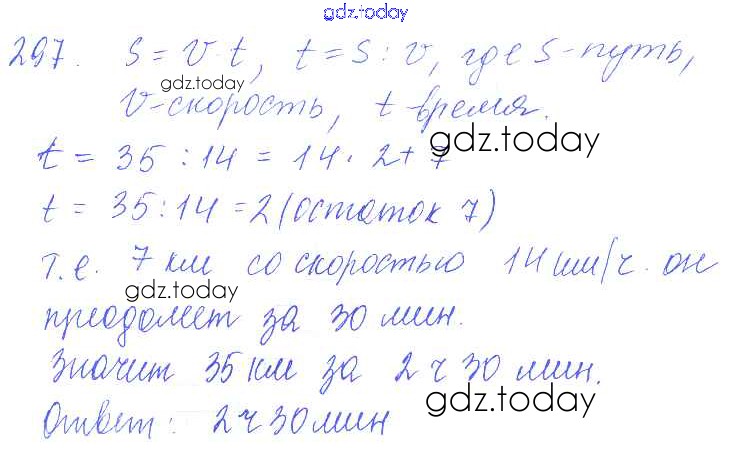 gdz.today
297. S = v · t, t = S : v, где S - путь,
gdz.today
v - скорость, t время.
gdz.today
t = 35 : 14 = 14 · 2 + 7
t = 35 : 14 = 2 (остаток 7)
т.е. 7 км со скоростью 14 км/ч. он
gdz.today
преодолеет за 30 мин.
Значит 35 км за 2 ч 30 мин.
gdz.today
Ответ: 2 ч 30 мин